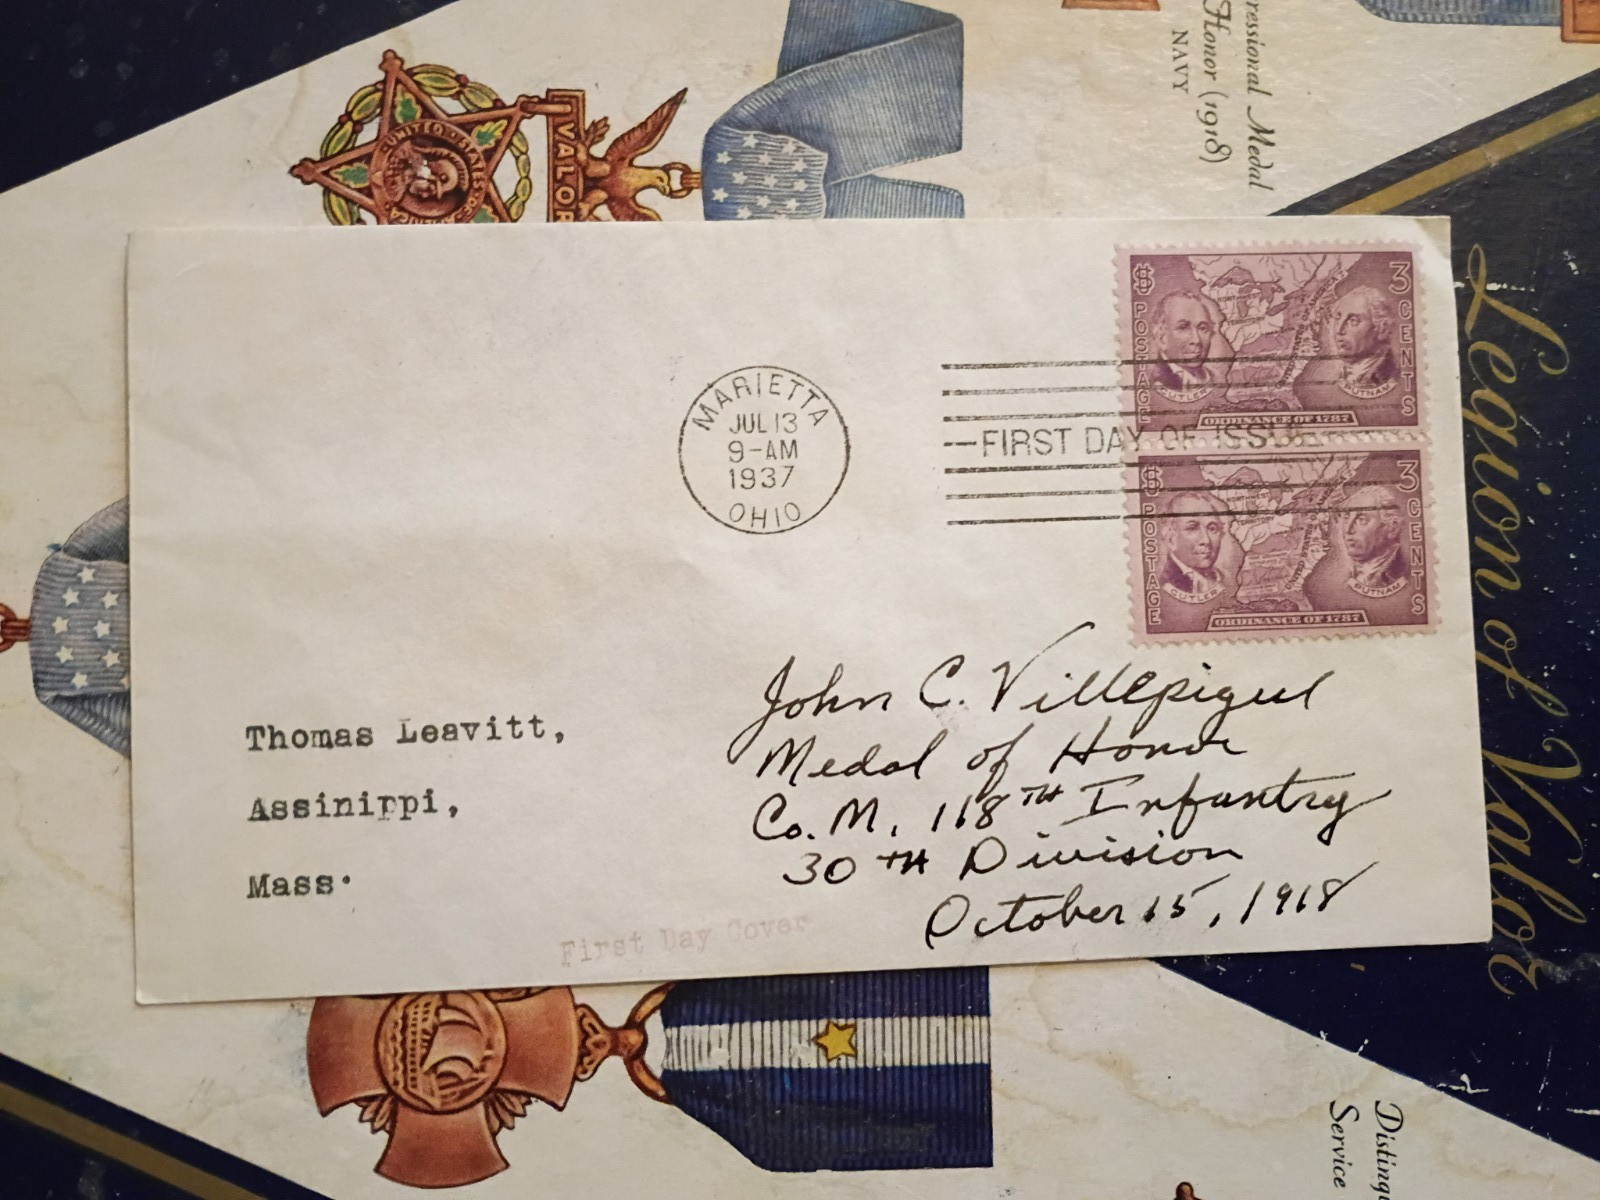 ressional Medal
Honor (1918)
NAVY
UNITED STATES OF
VALOR
Legion of Valor
MARIETTA
JUL 13
9-AM
1937
OHIO
FIRST DAY OF ISSUE
$ 3
POSTAGE
CENTS
CUTLER
PUTNAM
ORDINANCE OF 1787
$ 3
POSTAGE
CENTS
NORTHWEST
TERRITORY
CUTLER
PUTNAM
ORDINANCE OF 1787
Thomas Leavitt,
Assinippi,
Mass.
John C. Villepigue
Medal of Honor
Co. M, 118TH Infantry
30TH Division
October 15, 1918
First Day Cover
Disting
Service